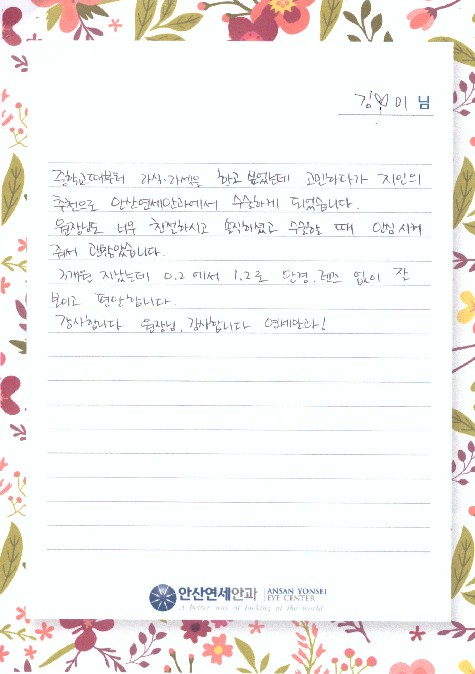 김♡미 님
중학교때부터 라식·라섹을 하고 싶었는데 고민하다가 지인의
추천으로 안산연세안과에서 수술하게 되었습니다.
원장님도 너무 친절하시고 솔직하셨고 수술할 때 안심시켜
줘서 괜찮았습니다.
3개월 지났는데 0.2에서 1.2로 안경, 렌즈 없이 잘
보이고 편안합니다.
감사합니다 원장님, 감사합니다 연세안과!
안산연세안과 ANSAN YONSEI
EYE CENTER
A better way of looking at the world